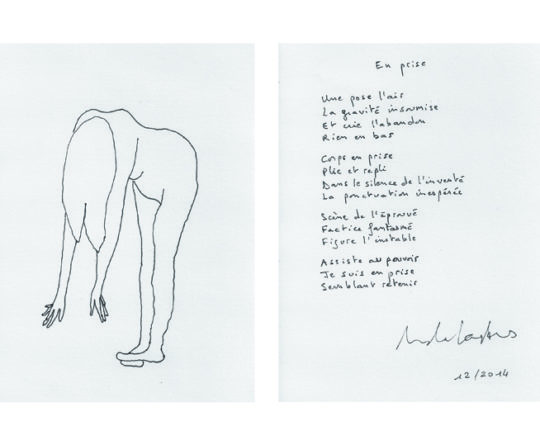 En prise
Une pose l'air
La gravité insoumise
Et crie l'abandon
Rien en bas
Corps en prise
Plié et repli
Dans le silence de l'inventé
La ponctuation inespérée
Scène de l'éprouvé
Factice fantasmé
Figure l'instable
Assiste au pouvoir
Je suis en prise
Semblant retenir
12/2014